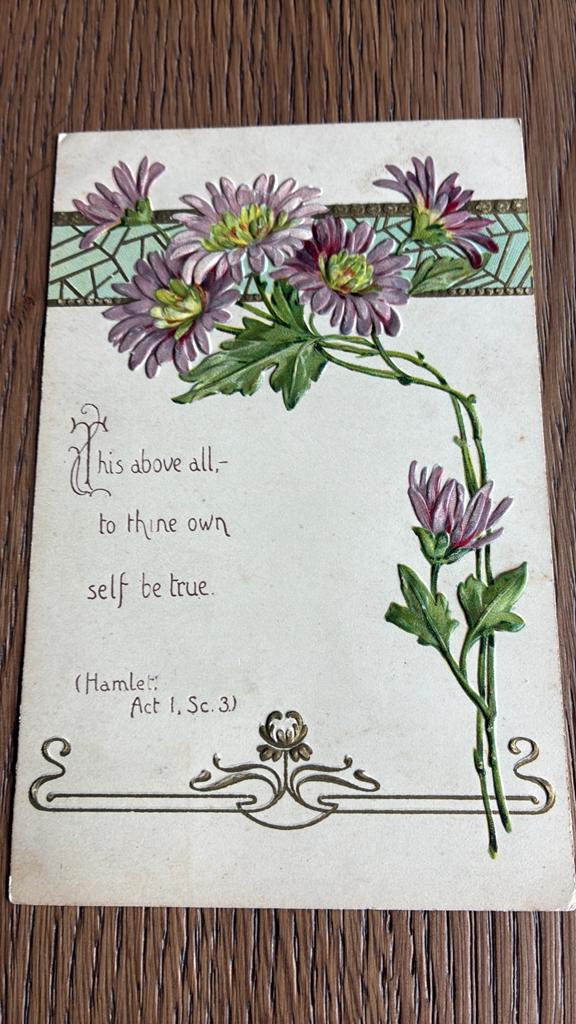 This above all,-
to thine own
self be true.
(Hamlet:
Act 1, Sc. 3)